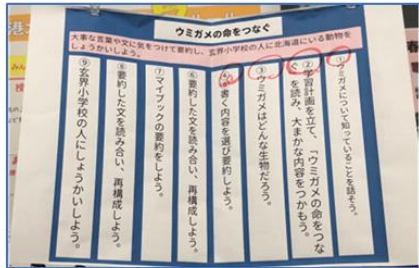 ウミガメの命をつなぐ
大事な言葉や文に気をつけて要約し、玄界小学校の人に北海道にいる動物を
しょうかいしよう。
①ウミガメについて知っていることを話そう。
②学習計画を立て、「ウミガメの命をつな
ぐ」を読み、大まかな内容をつかもう。
③ウミガメはどんな生物だろう。
書く内容を選び要約しよう。
⑥要約した文を読み合い、再構成しよう。
⑦マイブックの要約をしよう。
⑧要約した文を読み合い、再構成しよう。
⑨玄界小学校の人にしょうかいしよう。